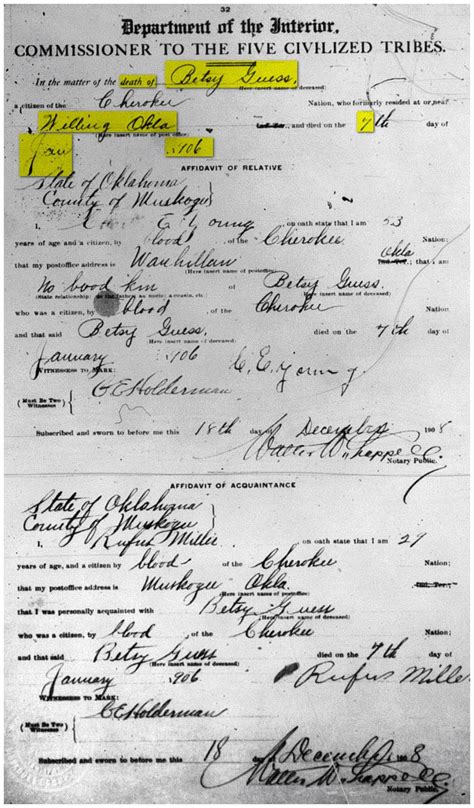 32
Department of the Interior,
COMMISSIONER TO THE FIVE CIVILIZED TRIBES.
In the matter of the death of Betsy Guess,
(Here insert name of deceased)
a citizen of the Cherokee Nation, who formerly resided at or near
Welling Okla Ind. Ter., and died on the 7th day of
(Here insert name of post office)
Jan 1906
AFFIDAVIT OF RELATIVE
State of Oklahoma
County of Muskogee
I, E Young, on oath state that I am 53
years of age and a citizen, by blood, of the Cherokee Nation;
that my postoffice address is Wauhillau Okla Ind. Ter.; that I am
(Here insert name of postoffice)
No bood kin of Betsy Guess.
(State relationship (Here insert name of deceased)
who was a citizen, by blood, of the Cherokee
and that said Betsy Guess. died on the 7th day of
(Here insert name of deceased)
January 1906 C. E. Young
WITNESSES TO MARK:
CE Holderman
(Must Be Two Witnesses)
Subscribed and sworn to before me this 18th day of December 1908
Walter W. Chappell
Notary Public.
AFFIDAVIT OF ACQUAINTANCE
State of Oklahoma
County of Muskogee
I, Rufus Miller on oath state that I am 29
years of age, and a citizen, by blood of the Cherokee Nation;
that my postoffice address is Muskogee Okla. Ind. Ter.;
(Here insert name of postoffice)
that I was personally acquainted with Betsy Guess
(Here insert name of deceased)
who was a citizen, by blood of the Cherokee Nation;
and that said Betsy Guess died on the 7th day of
(Here insert name of deceased)
January 1906 Rufus Miller
WITNESSES TO MARK:
CE Holderman
(Must Be Two Witnesses)
Subscribed and sworn to before me this 18 December 1908
Walter W. Chappell
Notary Public.